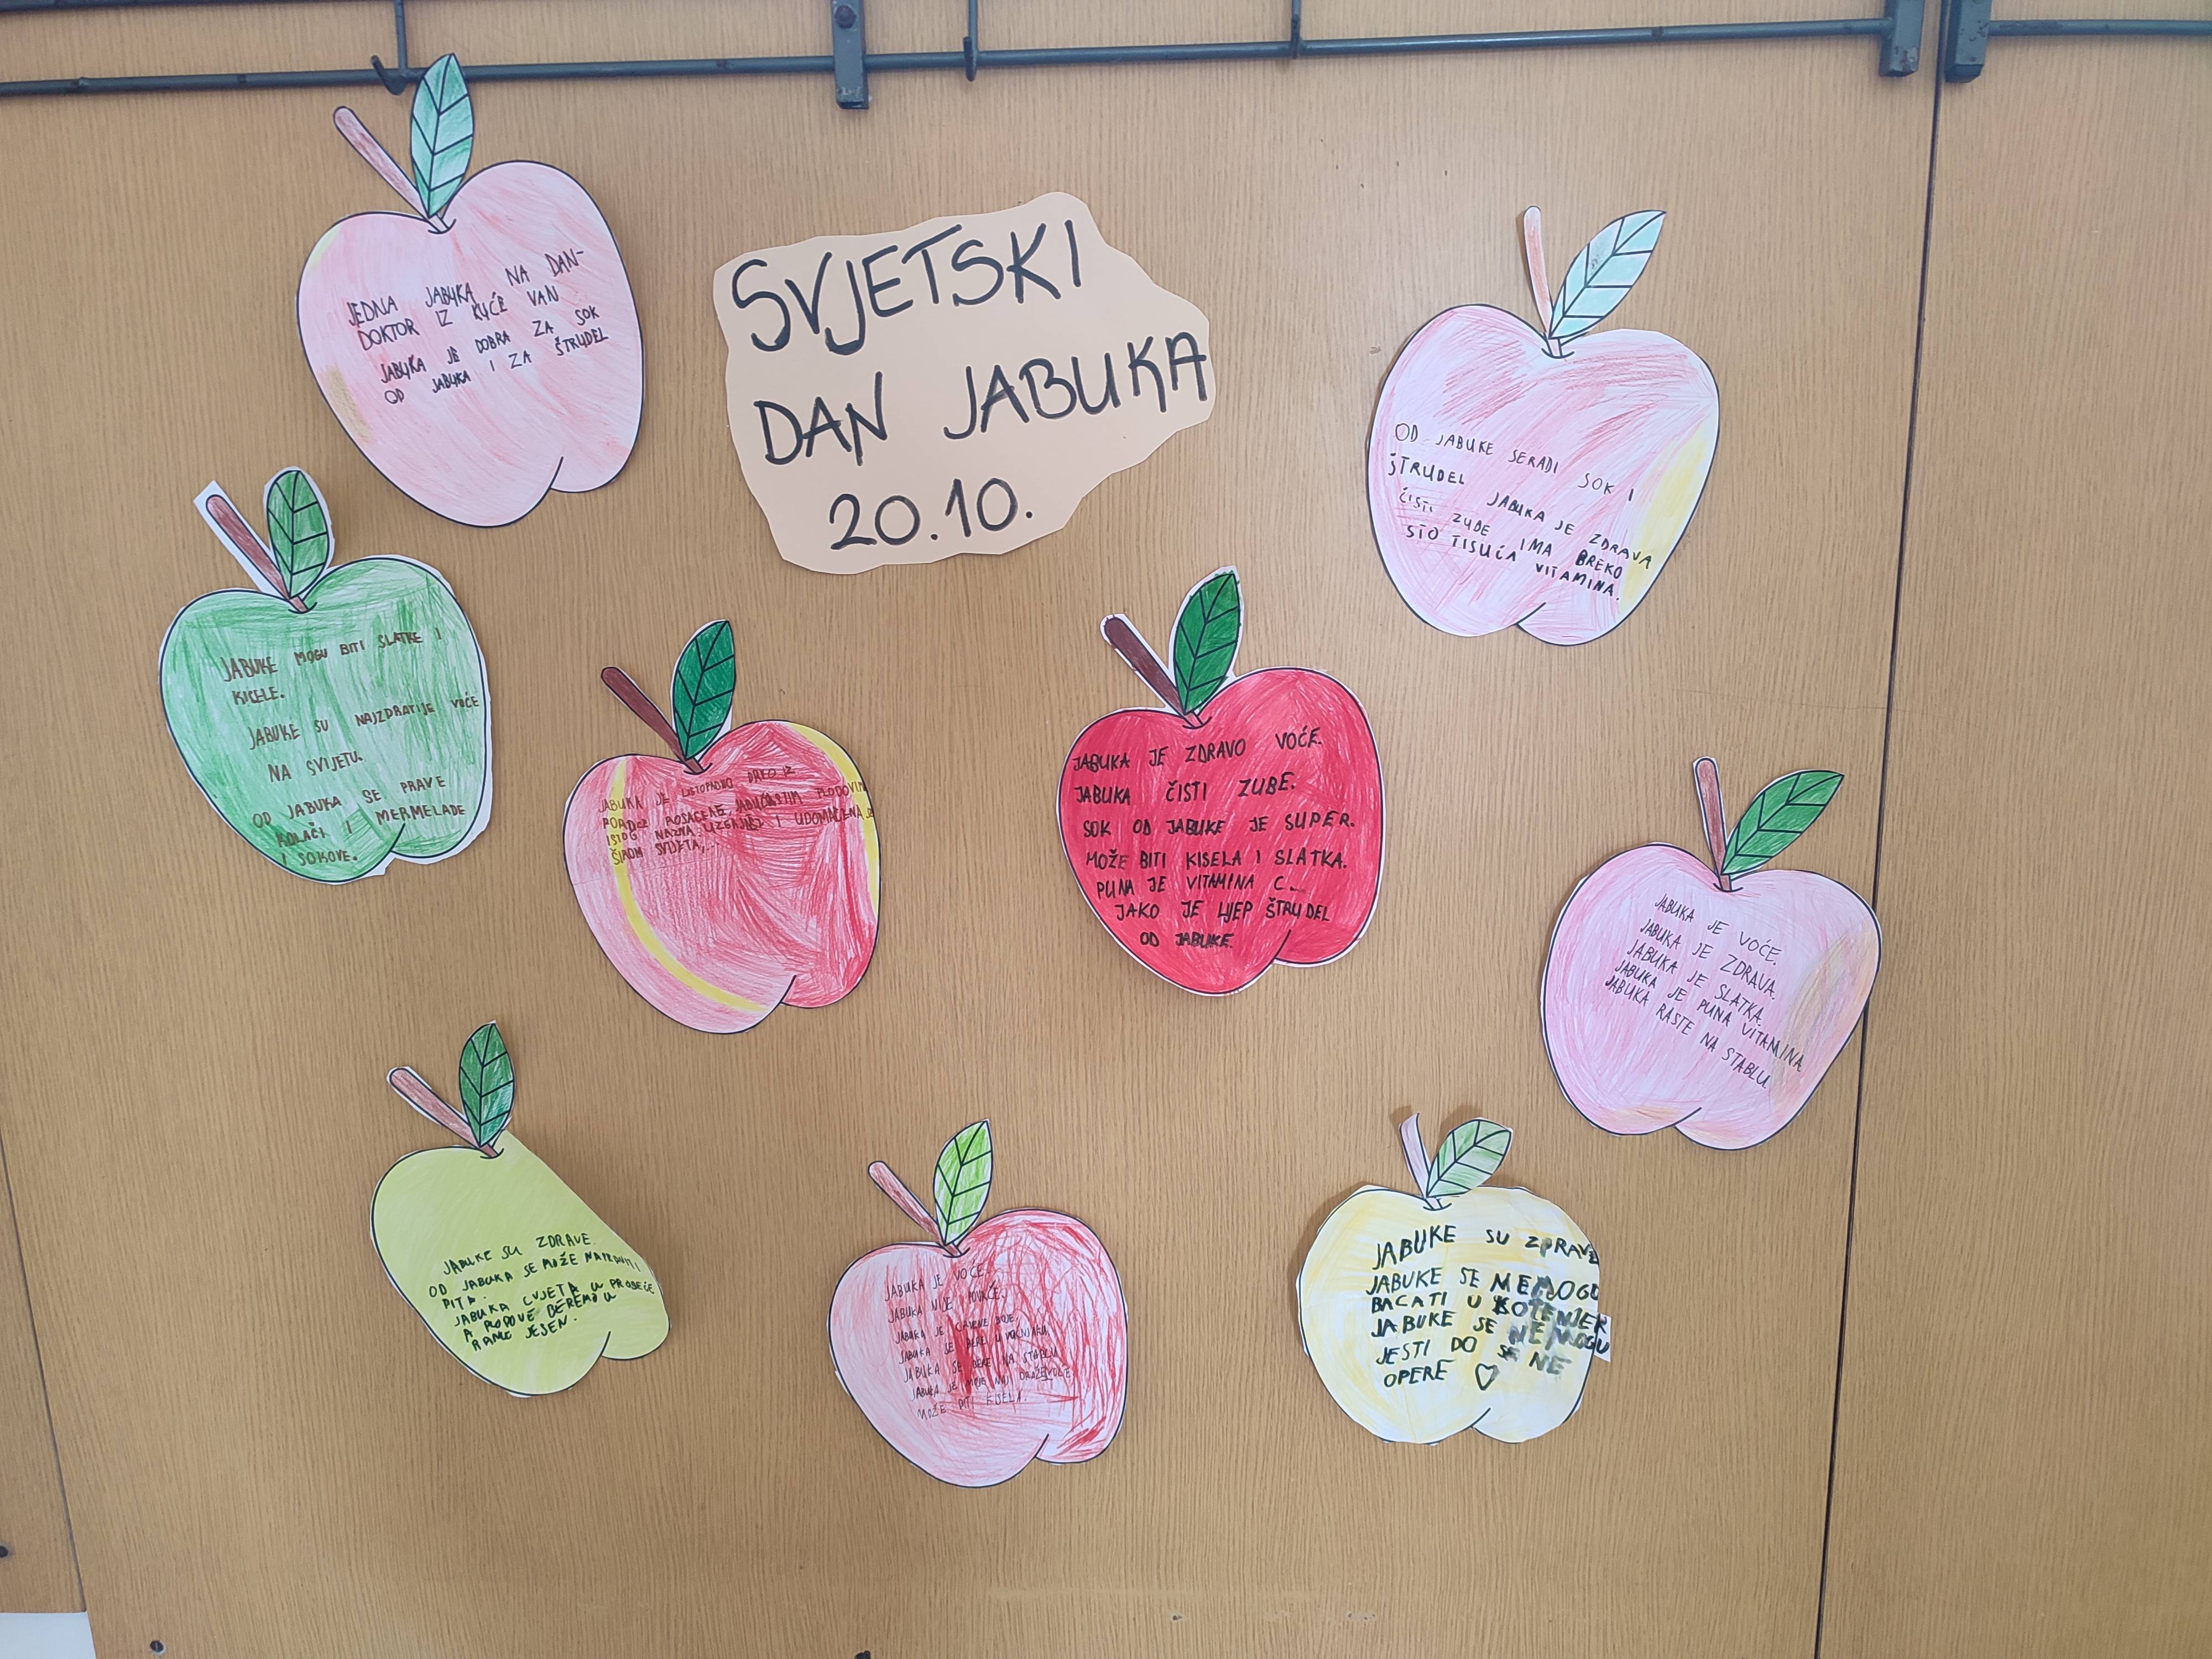 JEDNA JABUKA NA DAN-
DOKTOR IZ KUĆE VAN
JABUKA JE DOBRA ZA SOK
OD JABUKA I ZA ŠTRUDEL
SVJETSKI
DAN JABUKA
20.10.
OD JABUKE SERADI SOK I
ŠTRUDEL JABUKA JE ZDRAVA
ČISTI ZUBE IMA BREKO
STO TISUĆA VITAMINA.
JABUKE MOGU BITI SLATKE I
KISELE.
JABUKE SU NAJZDRATIJE VOĆE
NA SVIJETU.
OD JABUKA SE PRAVE
KOLAČI I MERMELADE
I SOKOVE.
JABUKA JE LISTOPADNO DREO IZ
PORODICE ROSACEAE, JABUČASTIM PLODOVIMA
ISTOG NAZIVA. UZGAJA I UDOMAĆENA JE
ŠIROM SVIJETA,...
JABUKA JE ZDRAVO VOĆE.
JABUKA ČISTI ZUBE.
SOK OD JABUKE JE SUPER.
MOŽE BITI KISELA I SLATKA.
PUNA JE VITAMINA C..
JAKO JE LIJEP ŠTRUDEL
OD JABUKE.
JABUKA JE VOĆE.
JABUKA JE ZDRAVA.
JABUKA JE SLATKA.
JABUKA JE PUNA VITAMINA
JABUKA RASTE NA STABLU.
JABUKE SU ZDRAVE
OD JABUKA SE MOŽE NAPRAVITI
PITA.
JABUKA CVJETA U PROLJEĆE
A PLODOVE BEREMO U
RANU JESEN.
JABUKA JE VOĆE.
JABUKA NIJE POVRĆE.
JABUKA JE CRVENE BOJE.
JABUKA JE BERE U VOĆNJAKU
JABUKA SE BERE NA STABLU
JABUKA JE MOJE NAJ DRAŽEVOĆE
MOŽE BITI KISELA.
JABUKE SU ZDRAVE
JABUKE SE NEMOGU
BACATI U KOTENJER
JABUKE SE NEMOGU
JESTI DO SE NE
OPERE